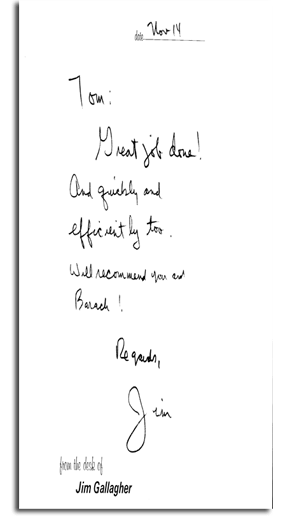 date Nov 14
Tom:
Great job done!
And quickly and
efficiently too.
Will recommend you and
Barach!
Regards,
Jim
from the desk of
Jim Gallagher